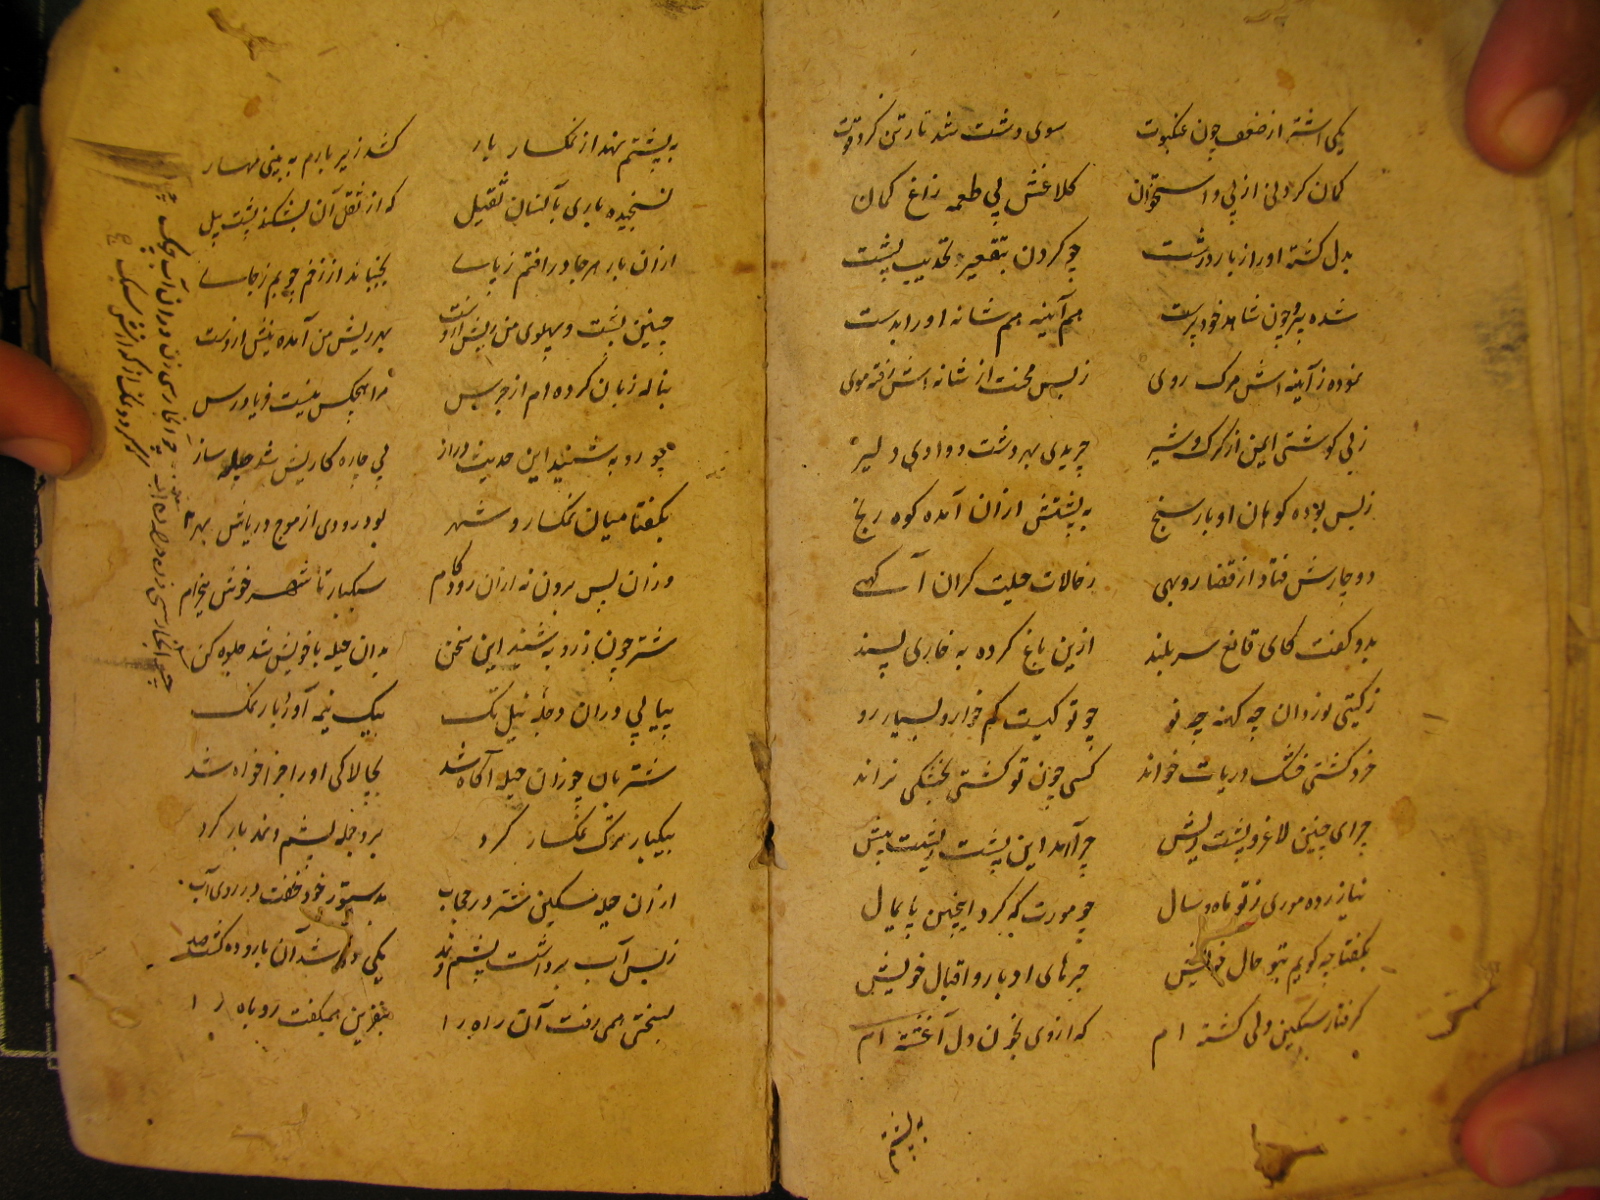 یکی اشتر از ضعف چون عنکبوت سوی دشت شد تار تن کرد قوت
کمان کردنی از پی و استخوان کلاغش پی طعمه زاغ کمان
بدل گشته او را ز بار درشت چو گردن بتقعیر تحدیب پشت
شده پیر چون شاهد خودپرست هم آئینه هم شانه او را بدست
نموده ز آئینه اش مرگ روی ز بس محنت از شانه اش رفته موی
ز بی گوشتی ایمن از گرگ و شیر چریدی بهر دشت و وادی دلیر
ز بس بوده کوهان او بارسنج به پشتش ازان آمده کوه رنج
دوچارش فتاد از قضا روبهی ز حالات حیلت گران آگهی
بدو گفت کای قانع سربلند ازین باغ کرده به خاری پسند
ز گیتی نوردان چه کهنه چه نو چو تو کیست کم خوار و بسیار رو
خرد کشتی خشک دریات خواند کسی چون تو کشتی بخشکی نراند
چرائی چنین لاغر و پشت ریش چرا آمد این پشت پشتت به پیش
نیازرده موری ز تو ماه و سال چو مورت که کرد اینچنین پایمال
بگفتا چه گویم بتو حال خویش جزهای ادبار و اقبال خویش
گرفتار سنگین دلی گشته ام که از وی بخون دل آغشته ام
به پشتم
به پشتم نهد از نمکسار بار کشد زیر بارم به بینی مهار
نسنجیده باری بآنسان ثقیل که از ثقل آن بشکند پشت پیل
ازان بار هر جا در افتم ز پا بجنباند از زخم چوبم ز جا
چنین پشت و پهلوی من ریش ازوست بهر ریش من آمده نیش ازوست
بناله زبان کرده ام از جرس مرا هیچکس نیست فریادرس
چو روبه شنید این حدیث دراز پی چاره کاریش شد حیله ساز
بگفتا میان نمکسار و شهر بود رودی از موج دریاش بهر
وزان پس برون نه ازان رود گام سبکبار تا شهر خوش میخرام
شتر چون ز روبه شنید این سخن بدان حیله با خویش شد جلوه کن
پیاپی دران دجله نیل تک بیک نیمه آورد بار نمک
شتربان چو زان حیله آگاه شد بچالاکی او را جزا خواه شد
بیکبار ترک نمکسار کرد برو جمله پشم و نمد بار کرد
ازان حیله مسکین شتر در حجاب بدستور خود خفت در روی آب
ز بس آب برداشت پشم و نمد یکی ده شد آن بار و ده گشت صد
بسختی همی رفت آن راه را بنفرین همیگفت روباه را